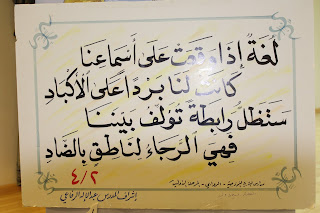 لغة إذا وقعت على أسماعنا
كانت لنا بردًا على الأكباد
ستظل رابطة تؤلف بيننا
فهي الرجاء لناطق بالضاد
٤/٢
إشراف المدرس عبدالإله الرفاعي